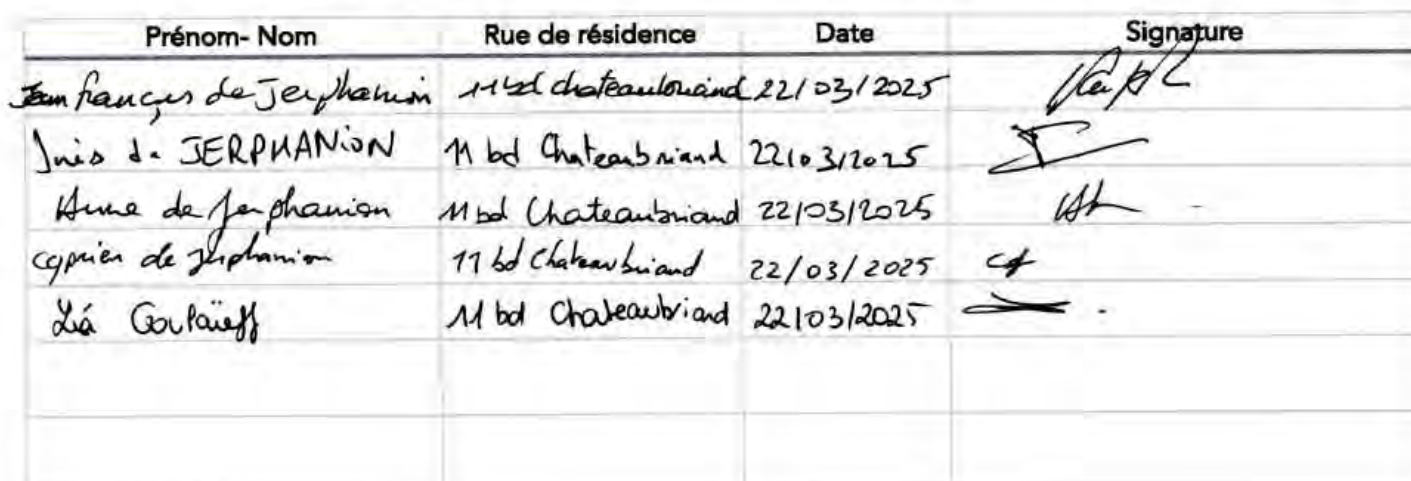 Prénom- Nom Rue de résidence Date Signature
Jean françois de Jerphanion 11 bd chateaubriand 22/03/2025
Inès de JERPHANION 11 bd Chateaubriand 22/03/2025
Anne de Jerphanion 11 bd Chateaubriand 22/03/2025
cyprien de Jerphanion 11 bd Chateaubriand 22/03/2025
11 bd Chateaubriand 22/03/2025